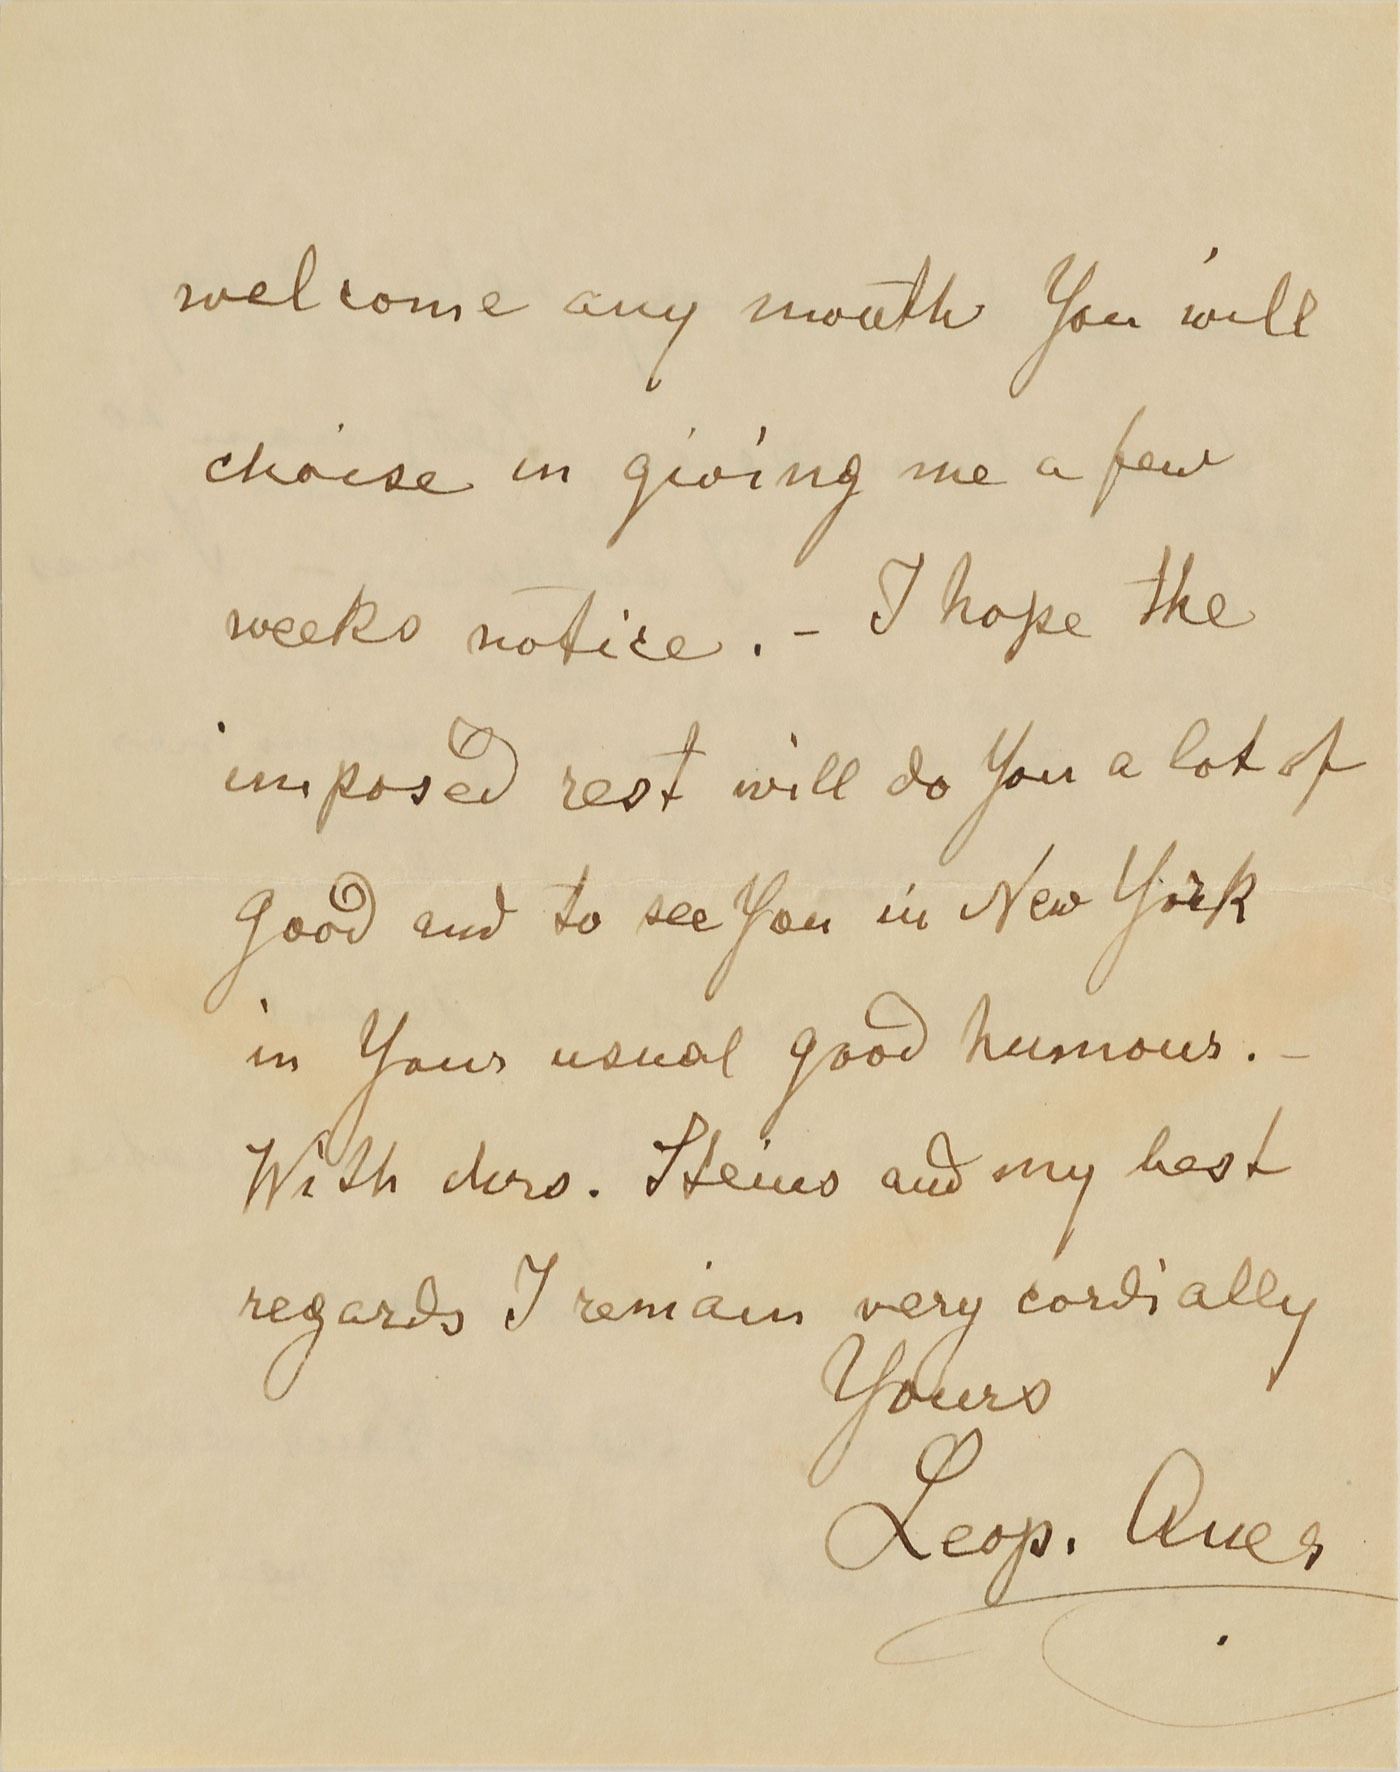 welcome any month You will
choise in giving me a few
weeks notice. - I hope the
imposed rest will do You a lot of
good and to see You in New York
in Your usual good humour. -
With Mrs. Steins and my best
regards I remain very cordially
Yours
Leop. Auer